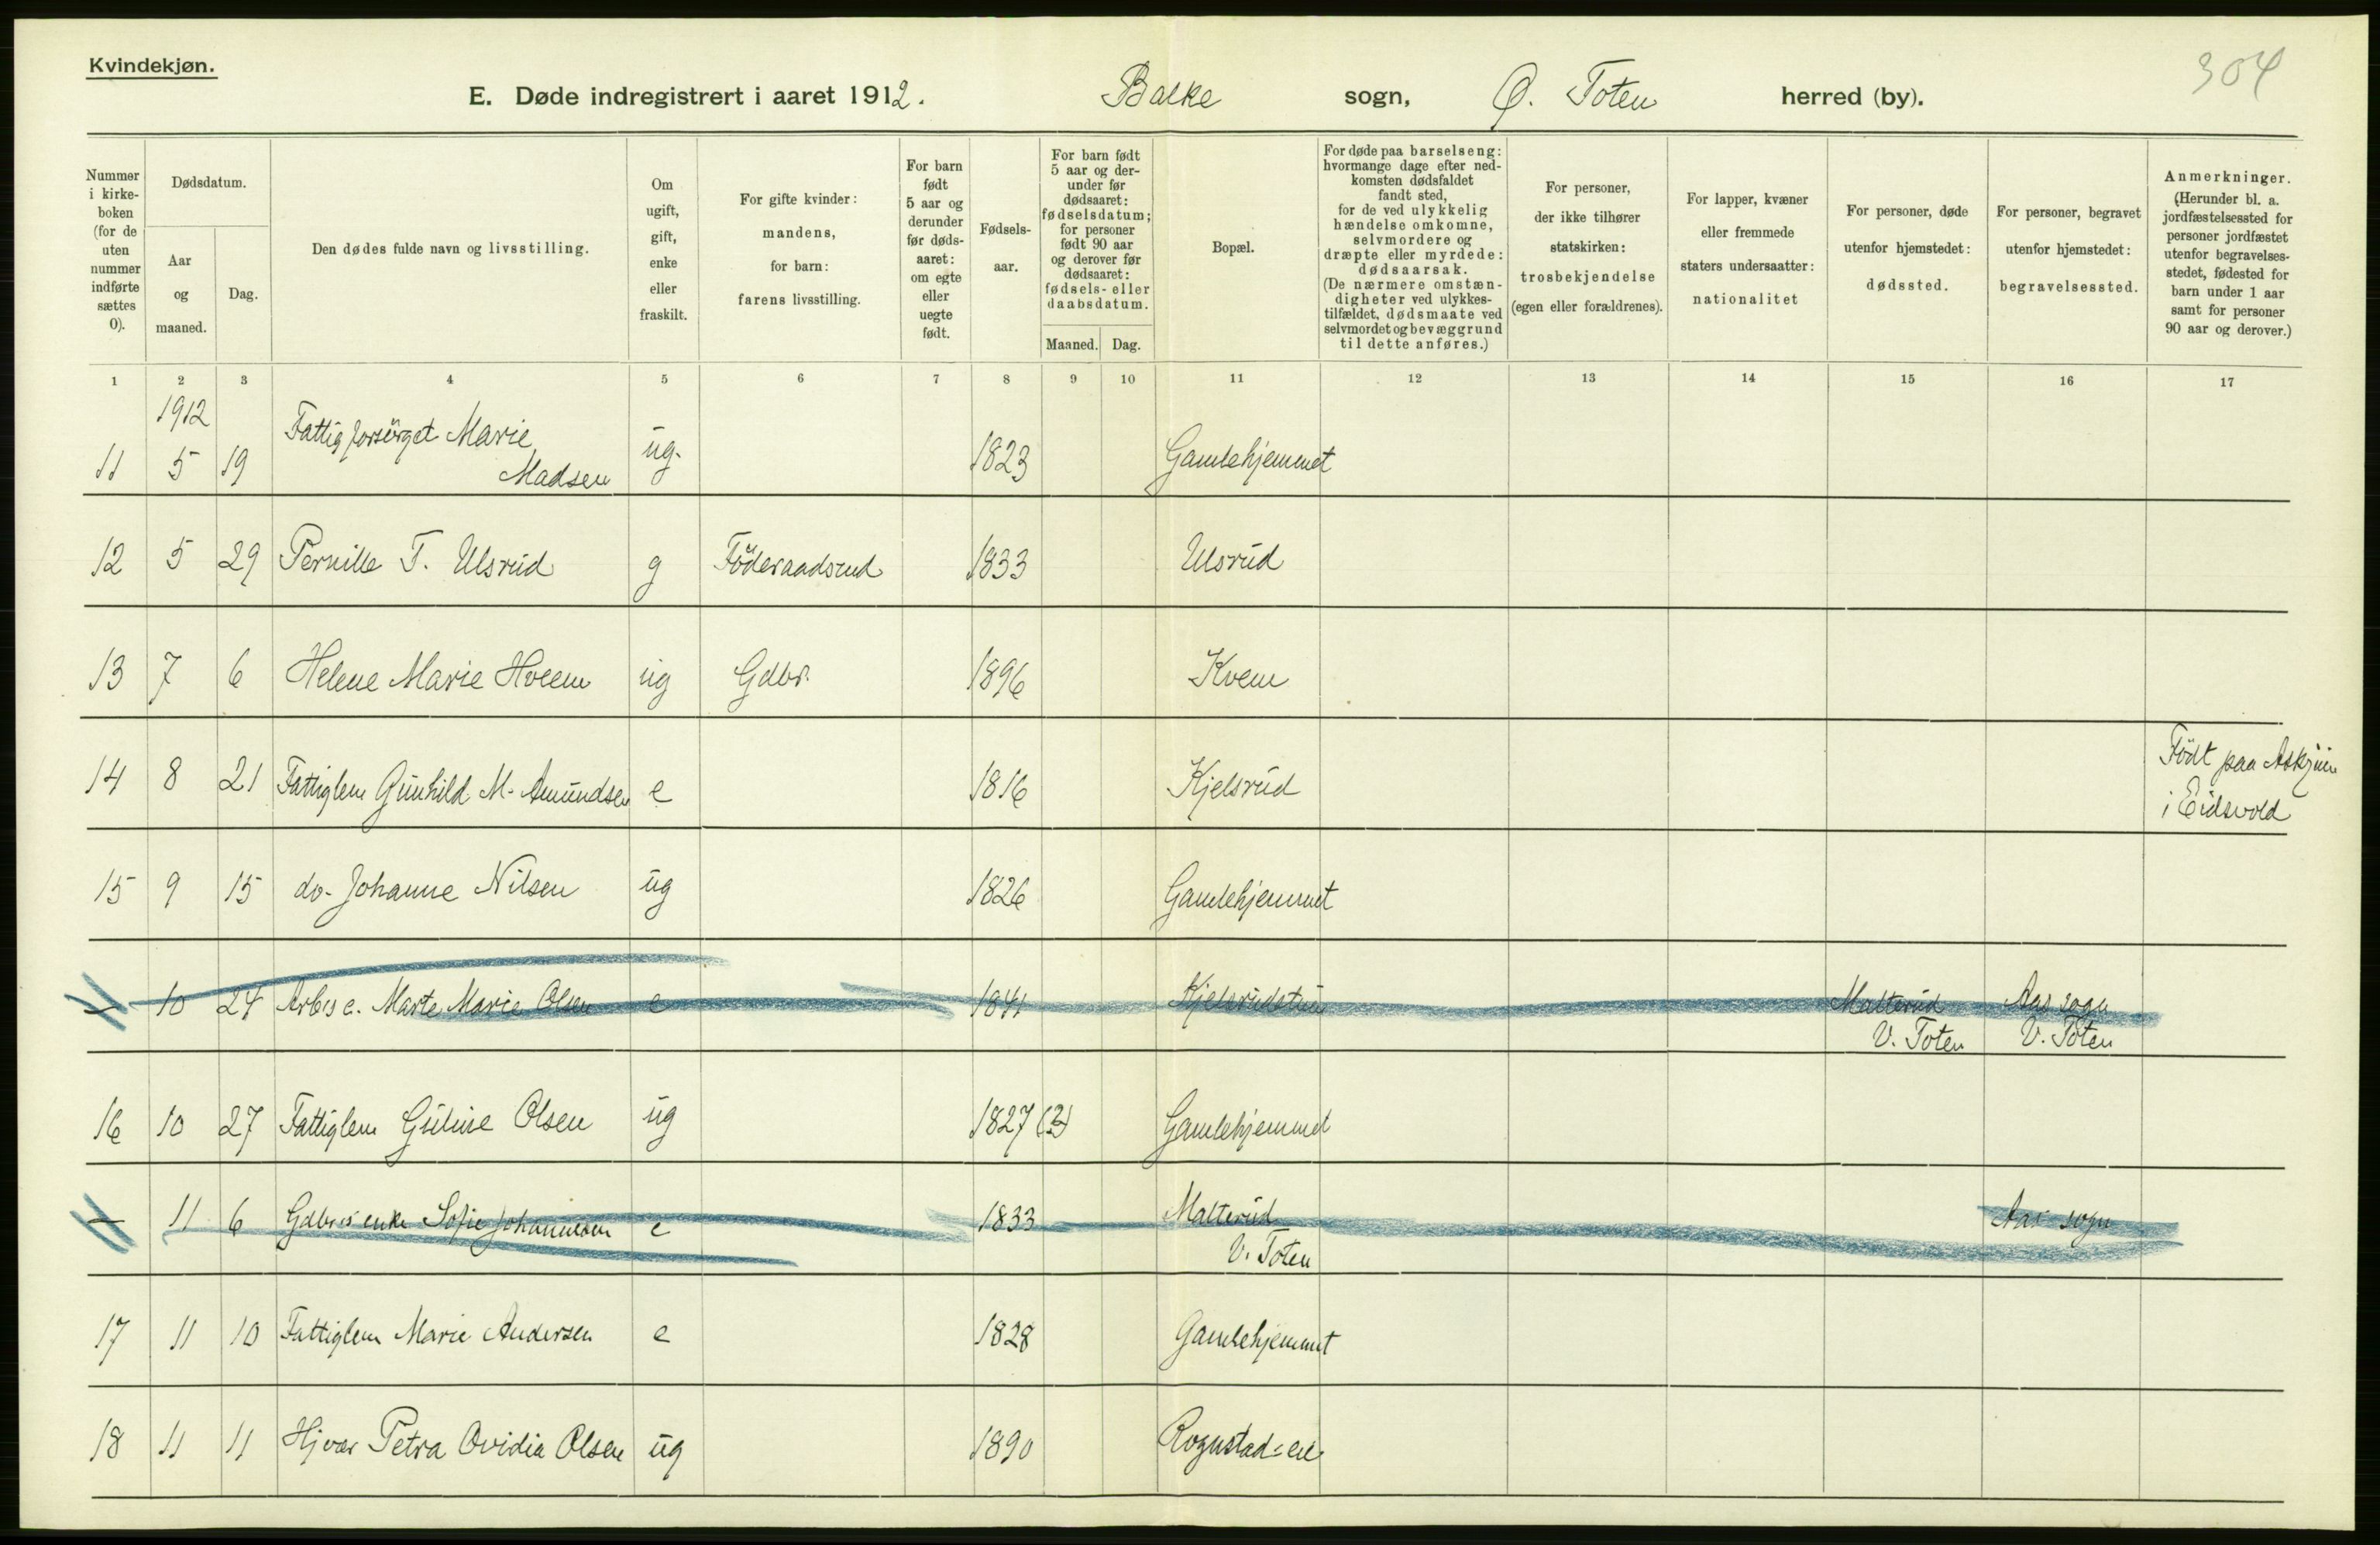 Kvindekjøn.
304
E. Døde indregistrert i aaret 1912. Balke sogn, Ø. Toten herred (by).
Nummer i kirke-boken (for de uten nummer indførte sættes 0).
Dødsdatum.
Aar og maaned.
Dag.
Den dødes fulde navn og livsstilling.
Om ugift, gift, enke eller fraskilt.
For gifte kvinder: mandens, for barn: farens livsstilling.
For barn født 5 aar og derunder før døds-aaret: om egte eller uegte født.
Fødsels-aar.
For barn født 5 aar og der-under før dødsaaret: fødselsdatum; for personer født 90 aar og derover før dødsaaret: fødsels- eller daabsdatum.
Maaned. Dag.
Bopæl.
For døde paa barselseng: hvormange dage efter ned-komsten dødsfaldet fandt sted, for de ved ulykkelig hændelse omkomne, selvmordere og dræpte eller myrdede: dødsaarsak. (De nærmere omstæn-digheter ved ulykkes-tilfældet, dødsmaate ved selvmordet og bevæggrund til dette anføres.)
For personer, der ikke tilhører statskirken: trosbekjendelse (egen eller forældrenes).
For lapper, kvæner eller fremmede staters undersaatter: nationalitet
For personer, døde utenfor hjemstedet: dødssted.
For personer, begravet utenfor hjemstedet: begravelsessted.
Anmerkninger. (Herunder bl. a. jordfæstelsessted for personer jordfæstet utenfor begravelses-stedet, fødested for barn under 1 aar samt for personer 90 aar og derover.)
1 2 3 4 5 6 7 8 9 10 11 12 13 14 15 16 17
1912
11 5 19 Fattigforsörget Marie Madsen ug. 1823 Gamlehjemmet
12 5 29 Pernille T. Ulsrud g Föderaadsmd 1833 Ulsrud
13 7 6 Helene Marie Hveem ug Gdbr. 1896 Kvem
14 8 21 Fattiglem Gunhild M. Amundsen e 1816 Kjelsrud Födt paa i Eidsvold
15 9 15 do. Johanne Nilsen ug 1826 Gamlehjemmet
10 24 Arbs e. Marte Marie Olsen e 1841 Kjelsrudstuen Malterud V. Toten Aas sogn V. Toten
16 10 27 Fattiglem Guline Olsen ug 1827 (2) Gamlehjemmet
11 6 Gdbrs enke Sofie Johannesen e 1833 Malterud V. Toten Aas sogn
17 11 10 Fattiglem Marie Andersen e 1828 Gamlehjemmet
18 11 11 Hjvær Petra Ovidia Olsen ug 1890 Rognstad-eie